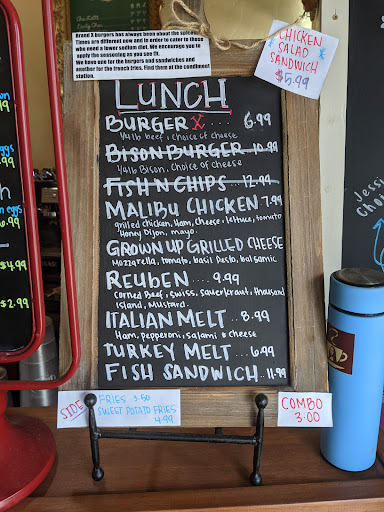 Brand X burgers has always been about the spices
Times are different now and in order to cater to those
who need a lower sodium diet. We encourage you to
apply the seasoning as you see fit.
We have one for the burgers and sandwiches and
another for the french fries. Find them at the condiment
station.
CHICKEN
SALAD
SANDWICH
$5.99
LUNCH
BURGER X .... 6.99
1/4 lb beef, choice of cheese
BISON BURGER 10.99
1/4 lb Bison, choice of cheese
FISH N CHIPS .. 12.99
MALIBU CHICKEN 7.99
grilled chicken, Ham, cheese, lettuce, tomato
Honey Dijon, mayo.
GROWN UP GRILLED CHEESE
Mozzarella, tomato, basil pesto, balsamic
REUBEN .... 9.99
Corned Beef, swiss, sauerkraut, thousand
Island, Mustard.
ITALIAN MELT .. 8.99
Ham, pepperoni, salami & cheese
TURKEY MELT .. 6.99
FISH SANDWICH .. 11.99
SIDE
FRIES 3.50
SWEET POTATO FRIES
4.99
COMBO
3.00
$4.99
$2.99